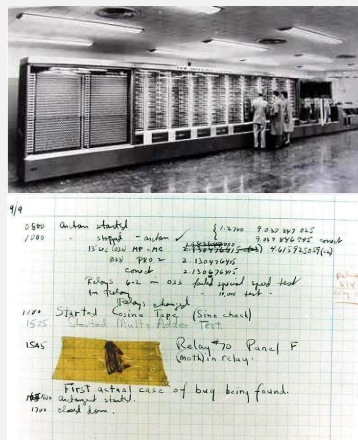 9/9
0800 Antan started
1000 " stopped - antan ✓ { 1.2700 9.037 847 025
9.037 846 995 correct
13"UC (032) MP-MC 4.615925059(-2)
(033) PRO 2 2.130476415
correct 2.130676415
Relays 6-2 in 033 failed special speed test
in Relay 10,000 test.
Relays changed
1100 Started Cosine Tape (Sine check)
1525 Started Multi Adder Test.
1545 Relay #70 Panel F
(Moth) in relay.
First actual case of bug being found.
antangent started.
1700 closed down.